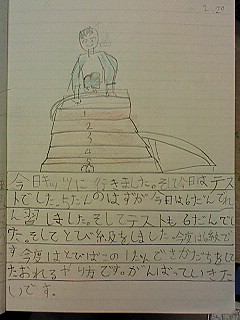 1.20
1
2
3
4
5
今日キッツに行きました。そして今日はテス
トでした。5だんのはずが今日は6だんでれ
ん習しました。そしてテストも6だんでし
た。そしてとび級をしました。今度は6級で
す今度はとびばこの1だんでさかだちをして
たおれるやり方です。がんばっていきた
いです。